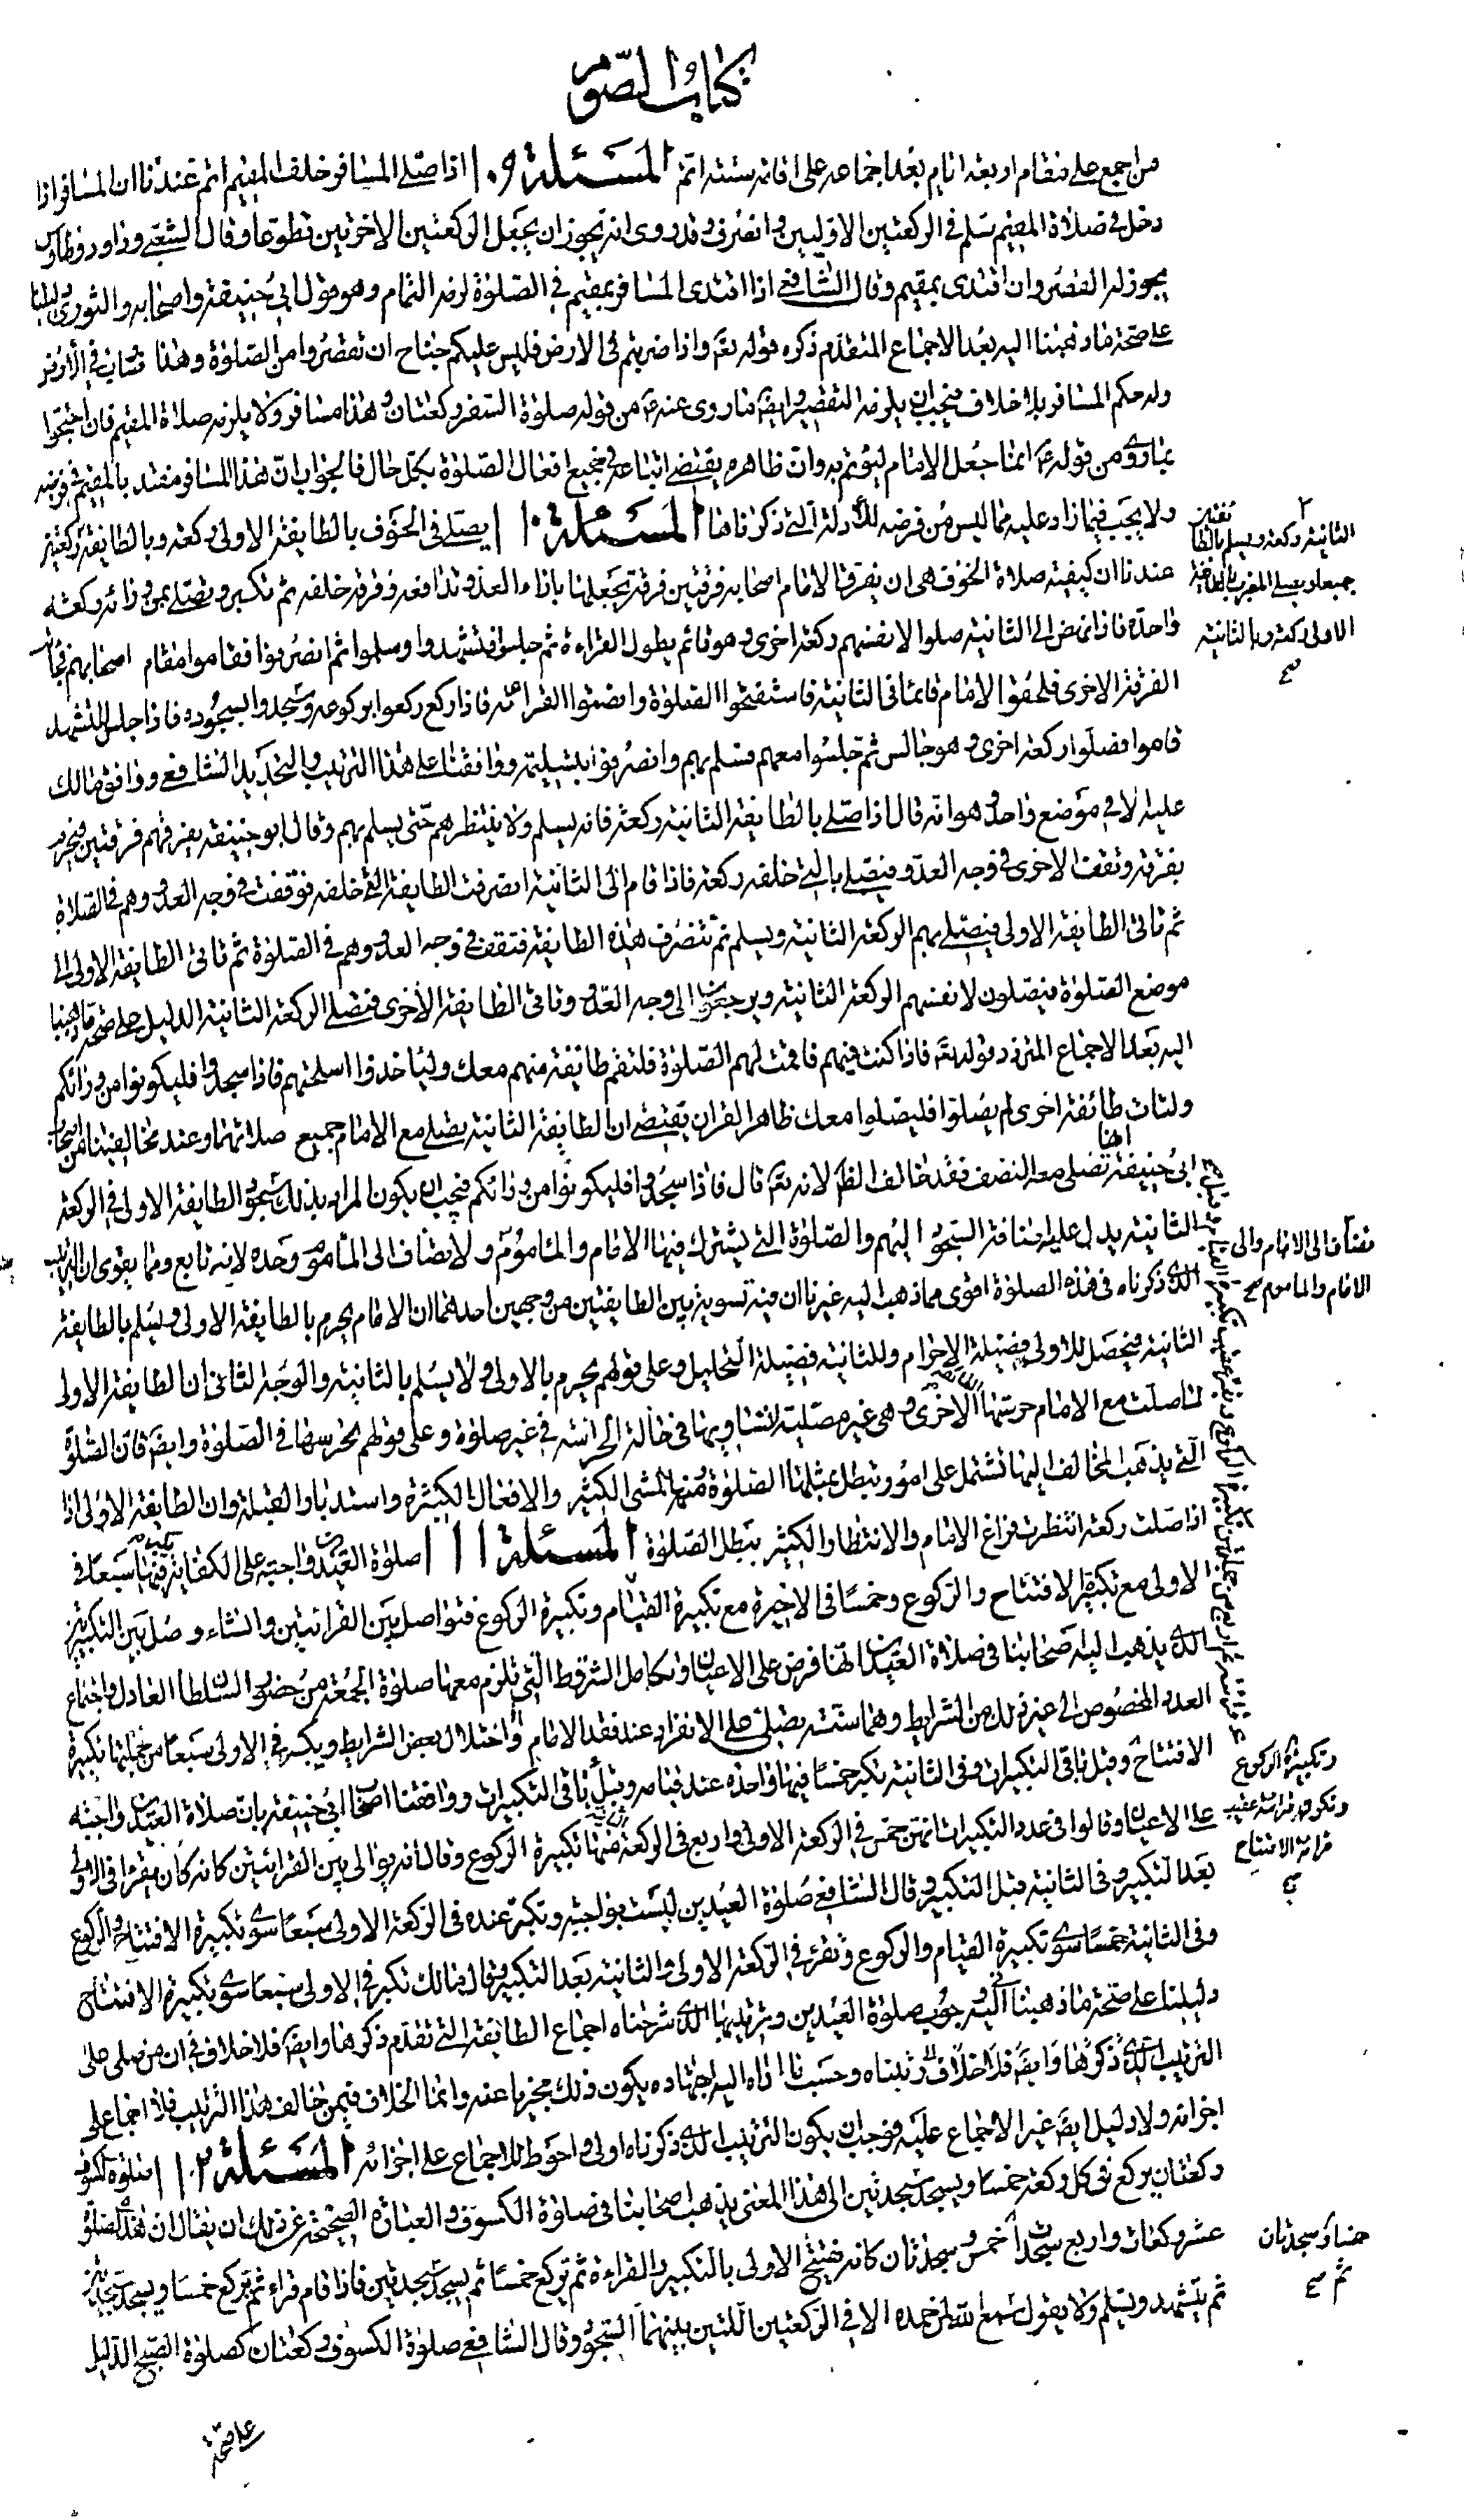 كتاب الصوم
من اجمع على مقام اربعة ايام بعد اجماعه على اقامة ستة اتم المسئلة ١٠٩ اذا صلى المسافر خلف المقيم اتم عندنا ان المسافر اذا
دخل في صلاة المقيم سلم في الركعتين الاوليين وانصرف وقد روى انه يجوز ان يجعل الركعتين الاخرتين تطوعا وقال الشعبي وداود وطاوس
يجوز له القصر وان اقتدى بمقيم وقال الشافعي اذا اقتدى المسافر بمقيم في الصلوة لزمه التمام وهو قول ابي حنيفة واصحابه والثوري دليلنا
على صحة ما ذهبنا اليه بعد الاجماع المتقدم ذكره قوله تعا واذا ضربتم في الارض فليس عليكم جناح ان تقصروا من الصلوة وهذا ضارب في الارض
وله حكم المسافر بلا خلاف فيجب ان يلزمه التقصير وايضا ما روى عنه ع من قوله صلوة السفر ركعتان وهذا مسافر ولا يلزمه صلاة المقيم فان احتجوا
بما روى من قوله ع انما جعل الامام ليؤتم به وان ظاهره يقتضى اتباعه في جميع افعال الصلوة بكل حال فالجواب ان هذا المسافر مقتد بالمقيم في فرضه
ولا يجب فيما زاد عليه مما ليس من فرضه للادلة التي ذكرناها المسئلة ١١٠ يصلى في الخوف بالطايفة الاولى ركعة وبالطايفة ركعتين
الثانية ركعة ويسلم بالطا
جميعا ويصلى المغرب
الاولى ركعة وبالثانية
عندنا ان كيفية صلاة الخوف هي ان يفرق الامام اصحابه فرقتين فرقة يجعلها بازاء العدو تدافعه وفرقة خلفه ثم تكبر ويصلى بمن ورائه ركعة
واحدة فاذا نهض الى الثانية صلوا لانفسهم ركعة اخرى وهو قائم يطول القراءة ثم جلسوا فتشهدوا وسلموا ثم انصرفوا فقاموا مقام اصحابهم فجائت
الفرقة الاخرى فلحقوا الامام قائما في الثانية فاستفتحوا الصلوة وانصتوا القرائة فاذا ركع ركعوا بركوعه وسجدوا بسجوده فاذا جلس للتشهد
قاموا فصلوا ركعة اخرى وهو جالس ثم جلسوا معهم فسلم بهم وانصرفوا بتسليمه ووافقنا على هذا الترتيب والتحديد الشافعي ووافق مالك
عليه الا في موضع واحد وهو انه قال اذا صلى بالطايفة الثانية ركعة فانه يسلم ولا ينتظرهم حتى يسلم بهم وقال ابو حنيفة يفرقهم فرقتين فيحرم
بفرقة وتقف الاخرى في وجه العدو فيصلى بالتي خلفه ركعة فاذا قام الى الثانية انصرفت الطايفة التي خلفه فوقفت في وجه العدو وهم في الصلاة
ثم تاتي الطايفة الاولى فيصلى بهم الركعة الثانية ويسلم ثم تنصرف هذه الطايفة فتقف في وجه العدو وهم في الصلوة ثم تاتي الطايفة الاولى الى
موضع الصلوة فيصلون لانفسهم الركعة الثانية ويرجعون الى وجه العدو وتاتي الطايفة الاخرى فتصلى الركعة الثانية الدليل على صحة ما ذهبنا
اليه بعد الاجماع المتردد قوله تعا فاذا كنت فيهم فاقمت لهم الصلوة فلتقم طائفة منهم معك وليأخذوا اسلحتهم فاذا سجدوا فليكونوا من ورائكم
ولتات طائفة اخرى لم يصلوا فليصلوا معك ظاهر القران يقتضى ان الطايفة الثانية يصلى مع الامام جميع صلاتها وعند مخالفينا من اصحاب
ابي حنيفة انها تصلى معه النصف فقد خالف الظاهر لانه تعا قال فاذا سجدوا فليكونوا من ورائكم فيجب ان يكون المراد بذلك سجود الطايفة الاولى في الركعة
الثانية يدل عليه اضافة السجود اليهم والصلوة التي يشترك فيها الامام والماموم ولا تضاف الى الماموم وحده لانه تابع ومما يقوى ان الترتيب
تضاف الى الامام والى
الامام والماموم صح
الذي ذكرناه في هذه الصلوة اقوى مما ذهب اليه غيرنا ان فيه تسوية بين الطايفتين من وجهين احدهما ان الامام يحرم بالطايفة الاولى ويسلم بالطايفة
الثانية فيحصل للاولى فضيلة الاحرام وللثانية فضيلة التحليل وعلى قولهم يحرم بالاولى ولا يسلم بالثانية والوجه الثاني ان الطايفة الاولى
لما صلت مع الامام حرستها الاخرى وهي غير مصلية لتساويها في حالة الحراسة في غير صلوة وعلى قولهم تحرسها في الصلوة وايضا فان الصلوة
التي يذهب المخالف اليها تشتمل على امور تبطل بمثلها الصلوة منها المشى الكثير والافعال الكثيرة واستدبار القبلة وان الطايفة الاولى اذا
اذا صلت ركعة انتظرت فراغ الامام والانتظار الكثير يبطل الصلوة المسئلة ١١١ صلوة العيدين واجبة على الكفاية يكبر فيها سبعا في
الاولى مع تكبيرة الافتتاح والركوع وخمسا في الاخيرة مع تكبيرة القيام وتكبيرة الركوع فتواصل بين القرائتين وان شاء وصل بين التكبيرتين
الذي يذهب اليه اصحابنا في صلاة العيدين انها فرض على الاعيان وتكامل الشروط التي تلزم معها صلوة الجمعة من حضور السلطان العادل واجتماع
العدد المخصوص الى غير ذلك من الشرايط وهما سنة يصلى على الانفراد عند فقد الامام او اختلال بعض الشرايط ويكبر في الاولى سبعا من جملتها تكبيرة
الافتتاح وقبل باقي التكبيرات وفي الثانية يكبر خمسا فيها واحدة عند قيامه وقبل باقي التكبيرات ووافقنا اصحاب ابي حنيفة بان صلاة العيدين واجبة
وتكبيرة الركوع
على الاعيان وقالوا في عدد التكبيرات انهن خمس في الركعة الاولى واربع في الركعة الثانية منها تكبيرة الركوع وقال انه يوالى بين القرائتين كانه كان يقرأ في الاولى
قرائة الافتتاح
بعد التكبير وفي الثانية قبل التكبير وقال الشافعي صلوة العيدين ليست بواجبة وتكبر عنده في الركعة الاولى سبعا سوى تكبيرة الافتتاح والركوع
وفي الثانية خمسا سوى تكبيرة القيام والركوع وتقرئ في الركعة الاولى والثانية بعد التكبير وقال مالك تكبر في الاولى سبعا سوى تكبيرة الافتتاح
دليلنا على صحة ما ذهبنا اليه في وجوب صلوة العيدين وترتيبها الذي شرحناه اجماع الطايفة التي تقدم ذكرها وايضا فلا خلاف في ان من صلى على
الترتيب الذي ذكرها وايضا فلا خلاف رتبناه وحسب ما اداه اليه اجتهاده يكون ذلك مجزيا عنه وانما الخلاف فيمن خالف هذا الترتيب فلا اجماع على
اجزائه ولا دليل ايضا غير الاجماع عليه فوجب ان يكون الترتيب الذي ذكرناه اولى واحوط للاجماع على اجزائه المسئلة ١١٢ صلوة الكسوف
ركعتان يركع في كل ركعة خمسا ويسجد سجدتين الى هذا المعنى يذهب اصحابنا في صلوة الكسوف والعبارة الصحيحة عن ذلك ان يقال ان هذه الصلوة
عشر ركعات واربع سجدات خمس وسجدتان كانه فيفتتح الاولى بالتكبير والقراءة ثم تركع خمسا ثم يسجد سجدتين فاذا قام قراء ثم تركع خمسا ويسجد سجدتين
خمسا وسجدتان
ثم صح
ثم يتشهد ويسلم ولا يقول سمع الله لمن حمده الا في الركعتين اللتين يليهما السجود وقال الشافعي صلوة الكسوف ركعتان كصلوة الصبح الدليل
على صحة